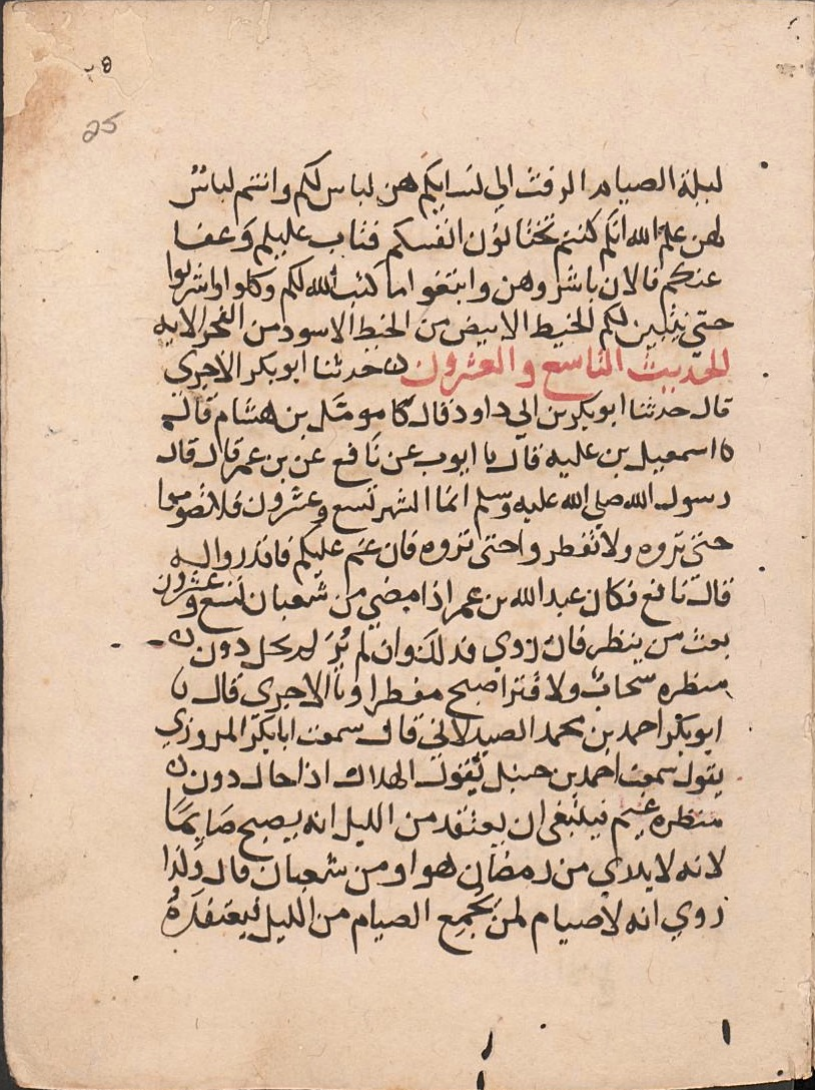 ٢٥
25
ليلة الصيام الرفث الي نسايكم هن لباس لكم وانتم لباس
لهن علم الله انكم كنتم تختانون انفسكم فتاب عليكم وعفا
عنكم فالان باشروهن وابتغوا ما كتب الله لكم وكلوا واشربوا
حتى يتبين لكم الخيط الابيض من الخيط الاسود من الفجر الايه
الحديث التاسع والعشرون حدثنا ابو بكر الاجري
قال حدثنا ابو بكر بن ابي داود قال نا مومل بن هشام قال
نا اسمعيل بن عليه قال نا ايوب عن نافع عن بن عمر قال قال
رسول الله صلي الله عليه وسلم انما الشهر تسع وعشرون فلا تصوموا
حتى تروه ولا تفطروا حتى تروه فان غم عليكم فاقدروا له
قال نافع فكان عبد الله بن عمر اذا مضي من شعبان تسع وعشرون
بعث من ينظر فان روي فذلك وان لم ير لم يحل دون
منظره سحاب ولا قتر اصبح مفطرا ونا الاجري قال نا
ابو بكر احمد بن محمد الصيدلاني قال سمعت ابا بكر المروزي
يقول سمعت احمد بن حنبل يقول الهلال اذا حال دون
منظره غيم فينبغي ان يعتقد من الليل انه يصبح صايما
لانه لا يدري من رمضان هو او من شعبان قال ولذا
روي انه لا صيام لمن يجمع الصيام من الليل فيعتقده